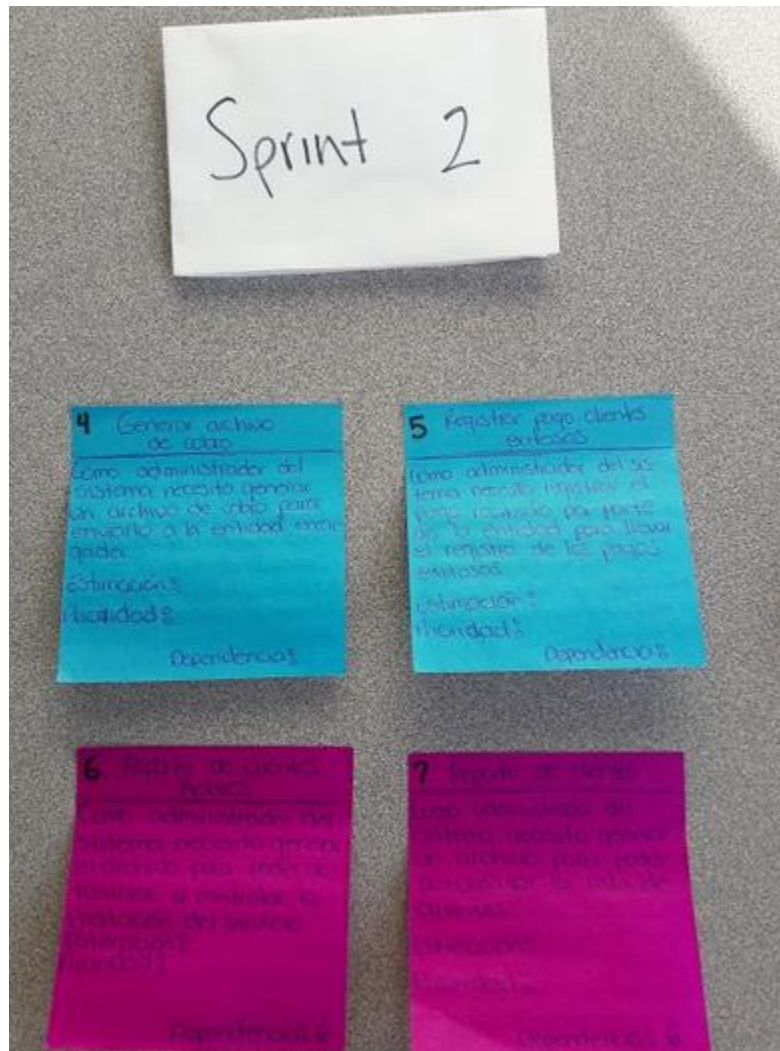 Sprint 2
4 Generar archivo
de cobro
Como administrador del
sistema necesito generar
un archivo de cobro para
enviarlo a la entidad encar
gada
Estimación:
Prioridad:
Dependencia:
5 Registrar pago clientes
exitosos
Como administrador del sis
tema necesito registrar el
pago por parte
de la entidad para llevar
el registro de los pagos
exitosos
Estimación:
Prioridad:
Dependencia:
6 Reporte de clientes
Activos
Como administrador del
sistema necesito generar
un archivo para poder
y controlar la
del servicio
Estimación:
Prioridad:
Dependencias 6
7 Reporte de clientes
Como administrador del
sistema necesito generar
un archivo para poder
la lista de
clientes
Estimación:
Prioridad:
Dependencias 6